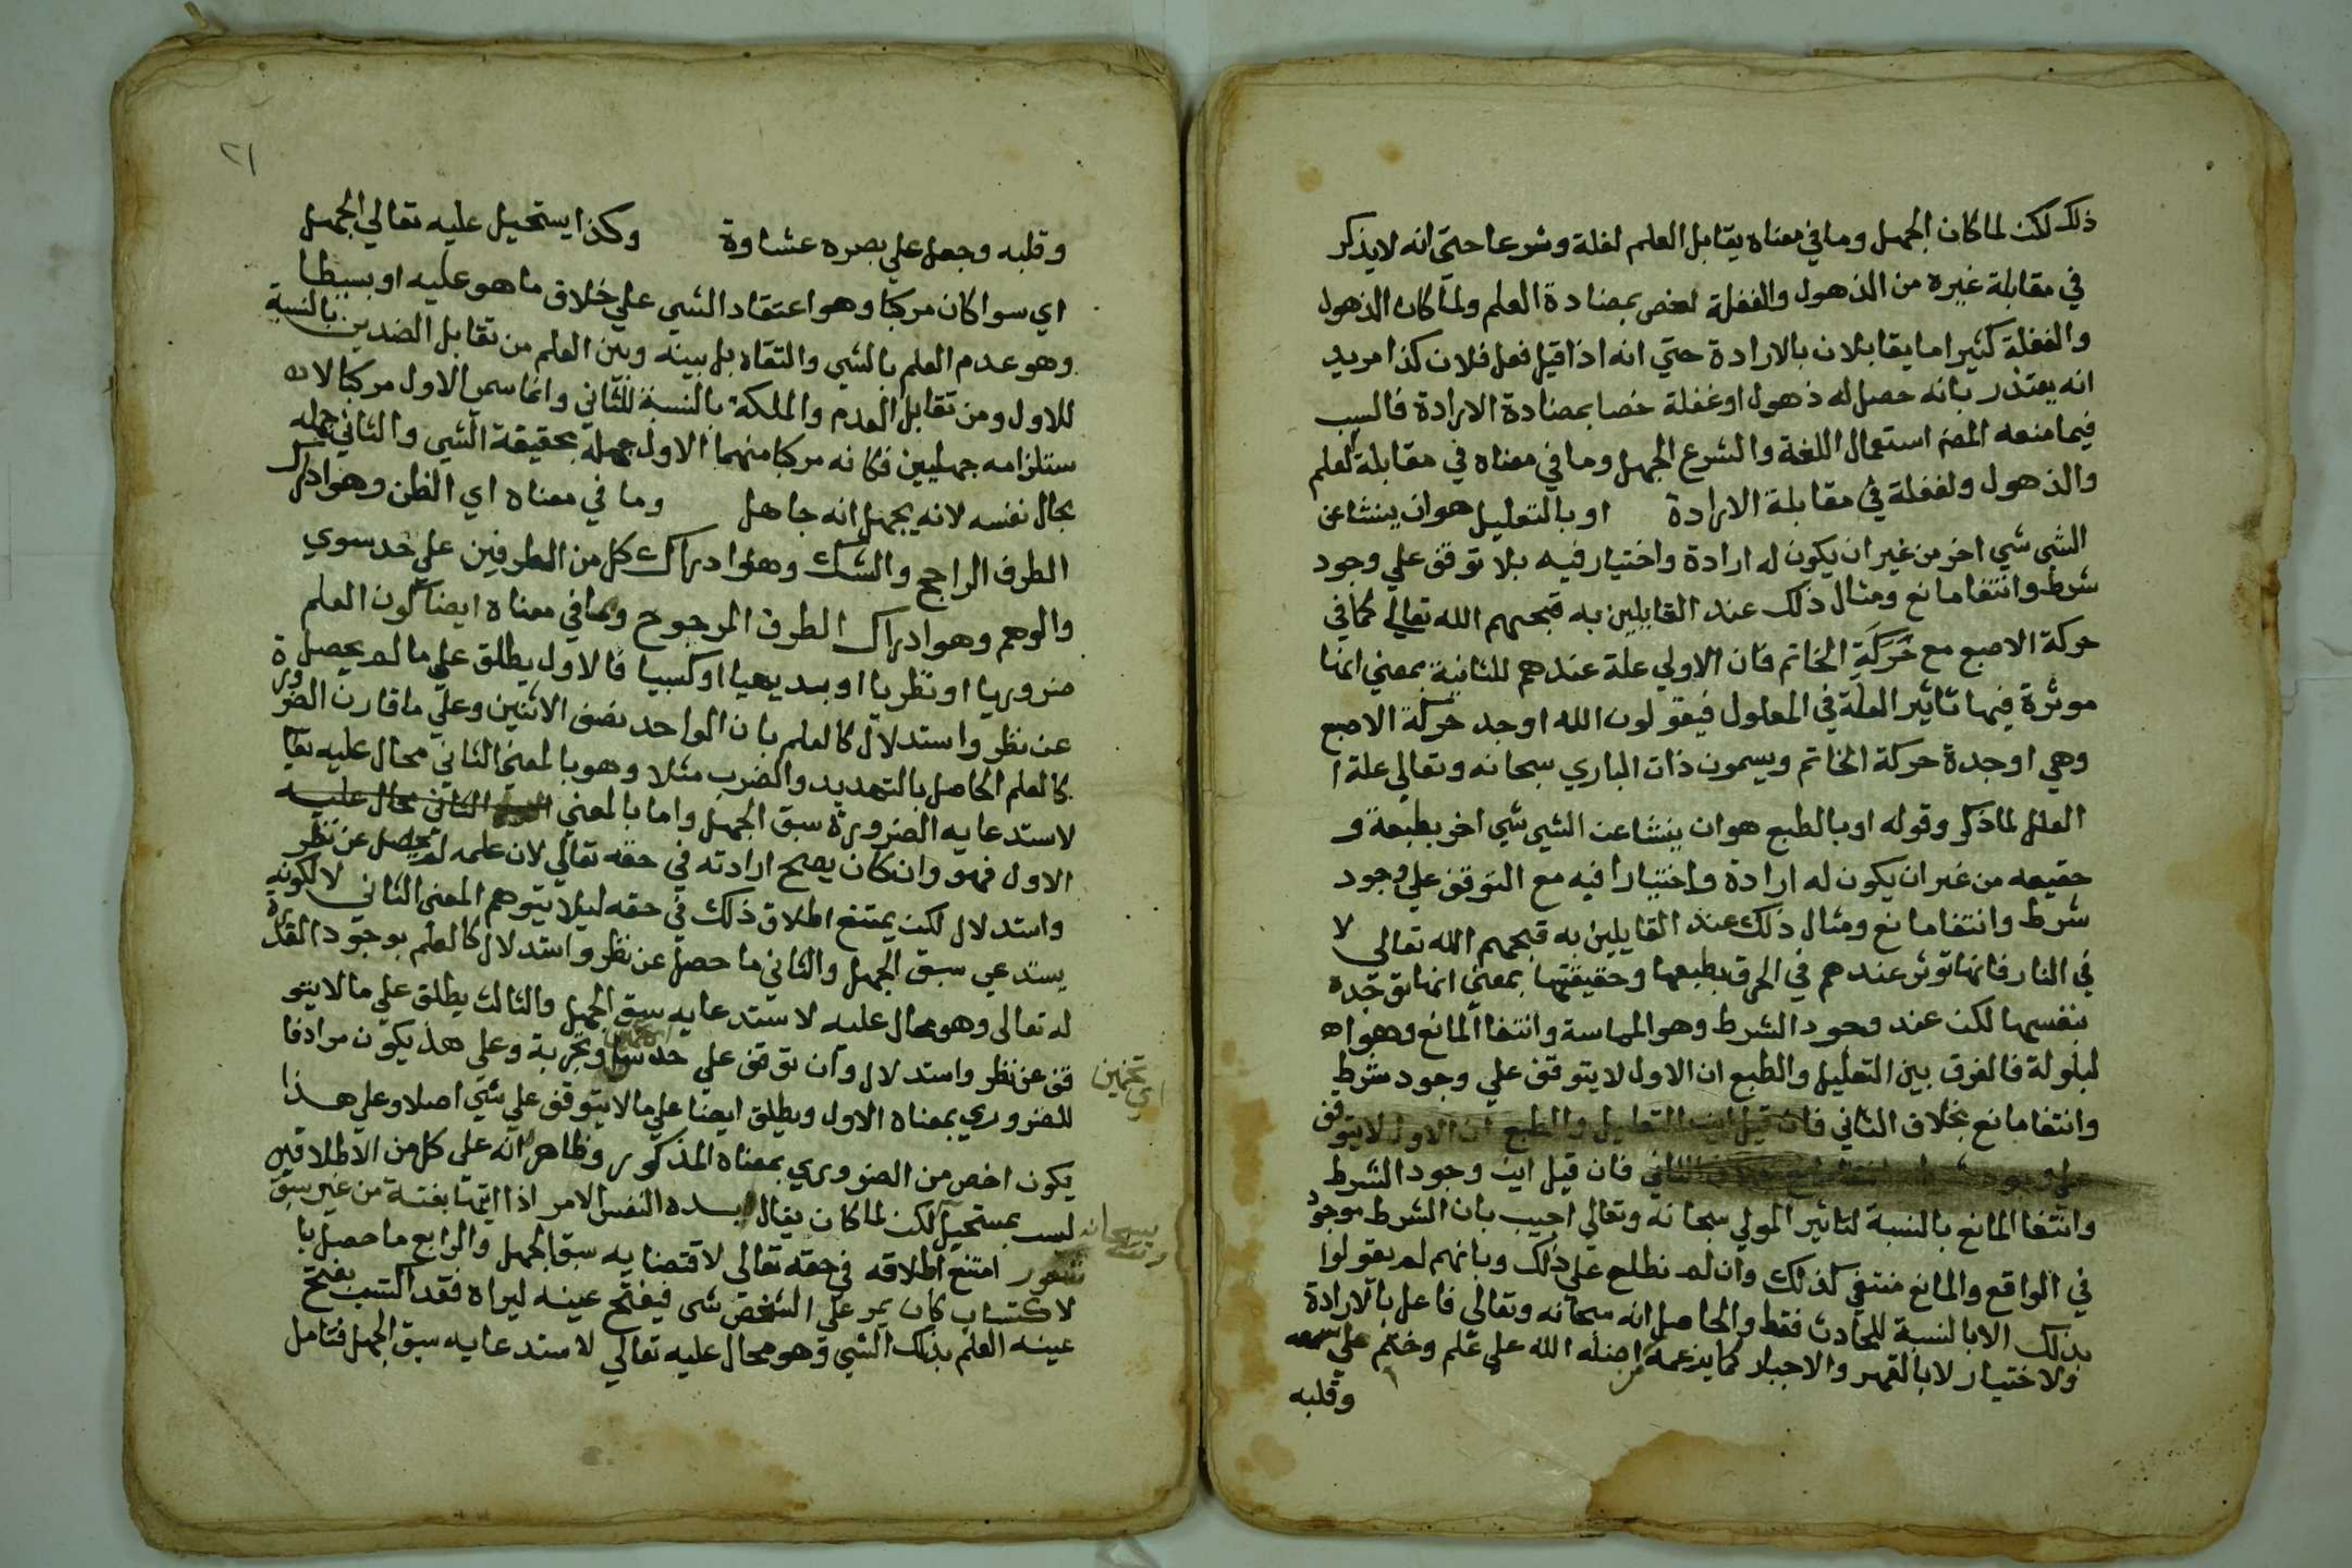 ذلك لكن لما كان الجهل وما في معناه يقابل العلم لغلة وشرعا حتي انه لا يذكر
في مقابلة غيره من الذهول والغفلة لخص بمضادة العلم ولما كان الذهول
والغفلة كثيرا ما يقابلان بالارادة حتي انه اذا قيل فعل فلان كذا مريد
انه يعتذر بانه حصل له ذهول او غفلة خصا بمضادة الارادة فالسبب
فيما منعه المضر استعمال اللغة والشرع الجهل وما في معناه في مقابلة لعلم
والذهول ولغفلة في مقابلة الارادة او بالتعليل هو ان ينشا عن
الشي شي اخر من غير ان يكون له ارادة واختيار فيه بلا توقف علي وجود
شرط وانتفا مانع ومثال ذلك عند القايلين به قبحهم الله تعالي كما في
حركة الاصبع مع حركة الخاتم فان الاولي علة عندهم للثانية بمعني انها
موثرة فيها تاثير العلة في المعلول فيقولون الله اوجد حركة الاصبع
وهي اوجدة حركة الخاتم ويسمون ذات الباري سبحانه وتعالي علة ا
العلل لما ذكر وقوله او بالطبع هو ان ينشا عن الشي شي اخر بطبعه و
حقيقه من غير ان يكون له ارادة واختيارا فيه مع التوقف علي وجود
شرط وانتفا مانع ومثال ذلك عند القايلين به قبحهم الله تعالي لا
في النار فانها توثر عندهم في الحرق بطبعها وحقيقتها بمعني انها توجده
بنفسها لكن عند وجود الشرط وهو المماسة وانتفا المانع وهو اه
لبلولة فالفرق بين التعليل والطبع ان الاول لا يتوقف علي وجود شرط
وانتفا مانع بخلاف الثاني فان قيل اين التعليل والطبع ان الاول لا يتوقف
علي وجود الثاني فان قيل اين وجود الشرط
وانتفا المانع بالنسبة لتاثير المولي سبحانه وتعالي اجيب بان الشرط موجود
في الواقع والمانع منتفي كذلك وان لم نطلع علي ذلك وبانهم لم يقولوا
بذلك الا بالنسبة للحادث فقط والحاصل انه سبحانه وتعالي فاعل بالارادة
ولاختيار لا بالقهر والاجبار كما يزعمه من اضله الله علي علم وختم علي سمعه
وقلبه
٢١
وقلبه وجعل علي بصره عشاوة وكذا يستحيل عليه تعالي الجهل
اي سوا كان مركبا وهو اعتقاد الشي علي خلاق ما هو عليه او بسيطا
وهو عدم العلم بالشي والتقابل بينه وبين العلم من تقابل الضدين بالنسبة
للاول ومن تقابل العدم والملكة بالنسبة للثاني وانما سمي الاول مركبا لا
ستلزامه جهليين فكانه مركبا منهما الاول جهله بحقيقة الشي والثاني جهله
بحال نفسه لانه يجهل انه جاهل وما في معناه اي الظن وهو ادراك
الطرف الراجح والشك وهو ادراك كل من الطرفين علي حد سوي
والوهم وهو ادراك الطرف المرجوح وما في معناه ايضا كون العلم
ضروريا او نظريا او بديهيا او كسبيا فالاول يطلق علي ما لم يحصل
عن نظر واستدلال كالعلم بان الواحد نصف الاثنين وعلي ما قارن الضرورة
كالعلم الحاصل بالتهديد والضرب مثلا وهو بالمعني الثاني محال عليه تعا
لاستدعايه الضرورة سبق الجهل واما بالمعني الثاني محال عليه
الاول فهو وان كان يصح ارادته في حقه تعالي لان علمه لم يحصل عن نظر
واستدلال لكن يمتنع اطلاق ذلك في حقه ليلا يتوهم المعني الثاني لا لكونه
يستدعي سبق الجهل والثاني ما حصل عن نظر واستدلال كالعلم بوجود القدرة
له تعالي وهو محال عليه لاستدعايه سبق الجهل والثالث يطلق علي ما لا يتو
قف عن نظر واستدلال وان توقف علي حدس وتجربة وعلي هذ يكون مرادفا
اي تخمين
للضروري بمعناه الاول ويطلق ايضا علي ما لا يتوقف علي شي اصلا وعلي هذا
يكون اخص من الضروري بمعناه المذكور وظاهر انه علي كل من الاطلاقين
ليس بمستحيل لكن لما كان يقال بده النفس الامر اذا اتها بغتة من غير سبق
شعور امتنع اطلاقه في حقه تعالي لاقتضايه سبق الجهل والرابع ما حصل با
لاكتساب كان يمر علي الشخص شي فيفتح عينه ليراه فقد اكتسب بفتح
عينه العلم بذلك الشي وهو محال عليه تعالي لاستدعايه سبق الجهل فتامل